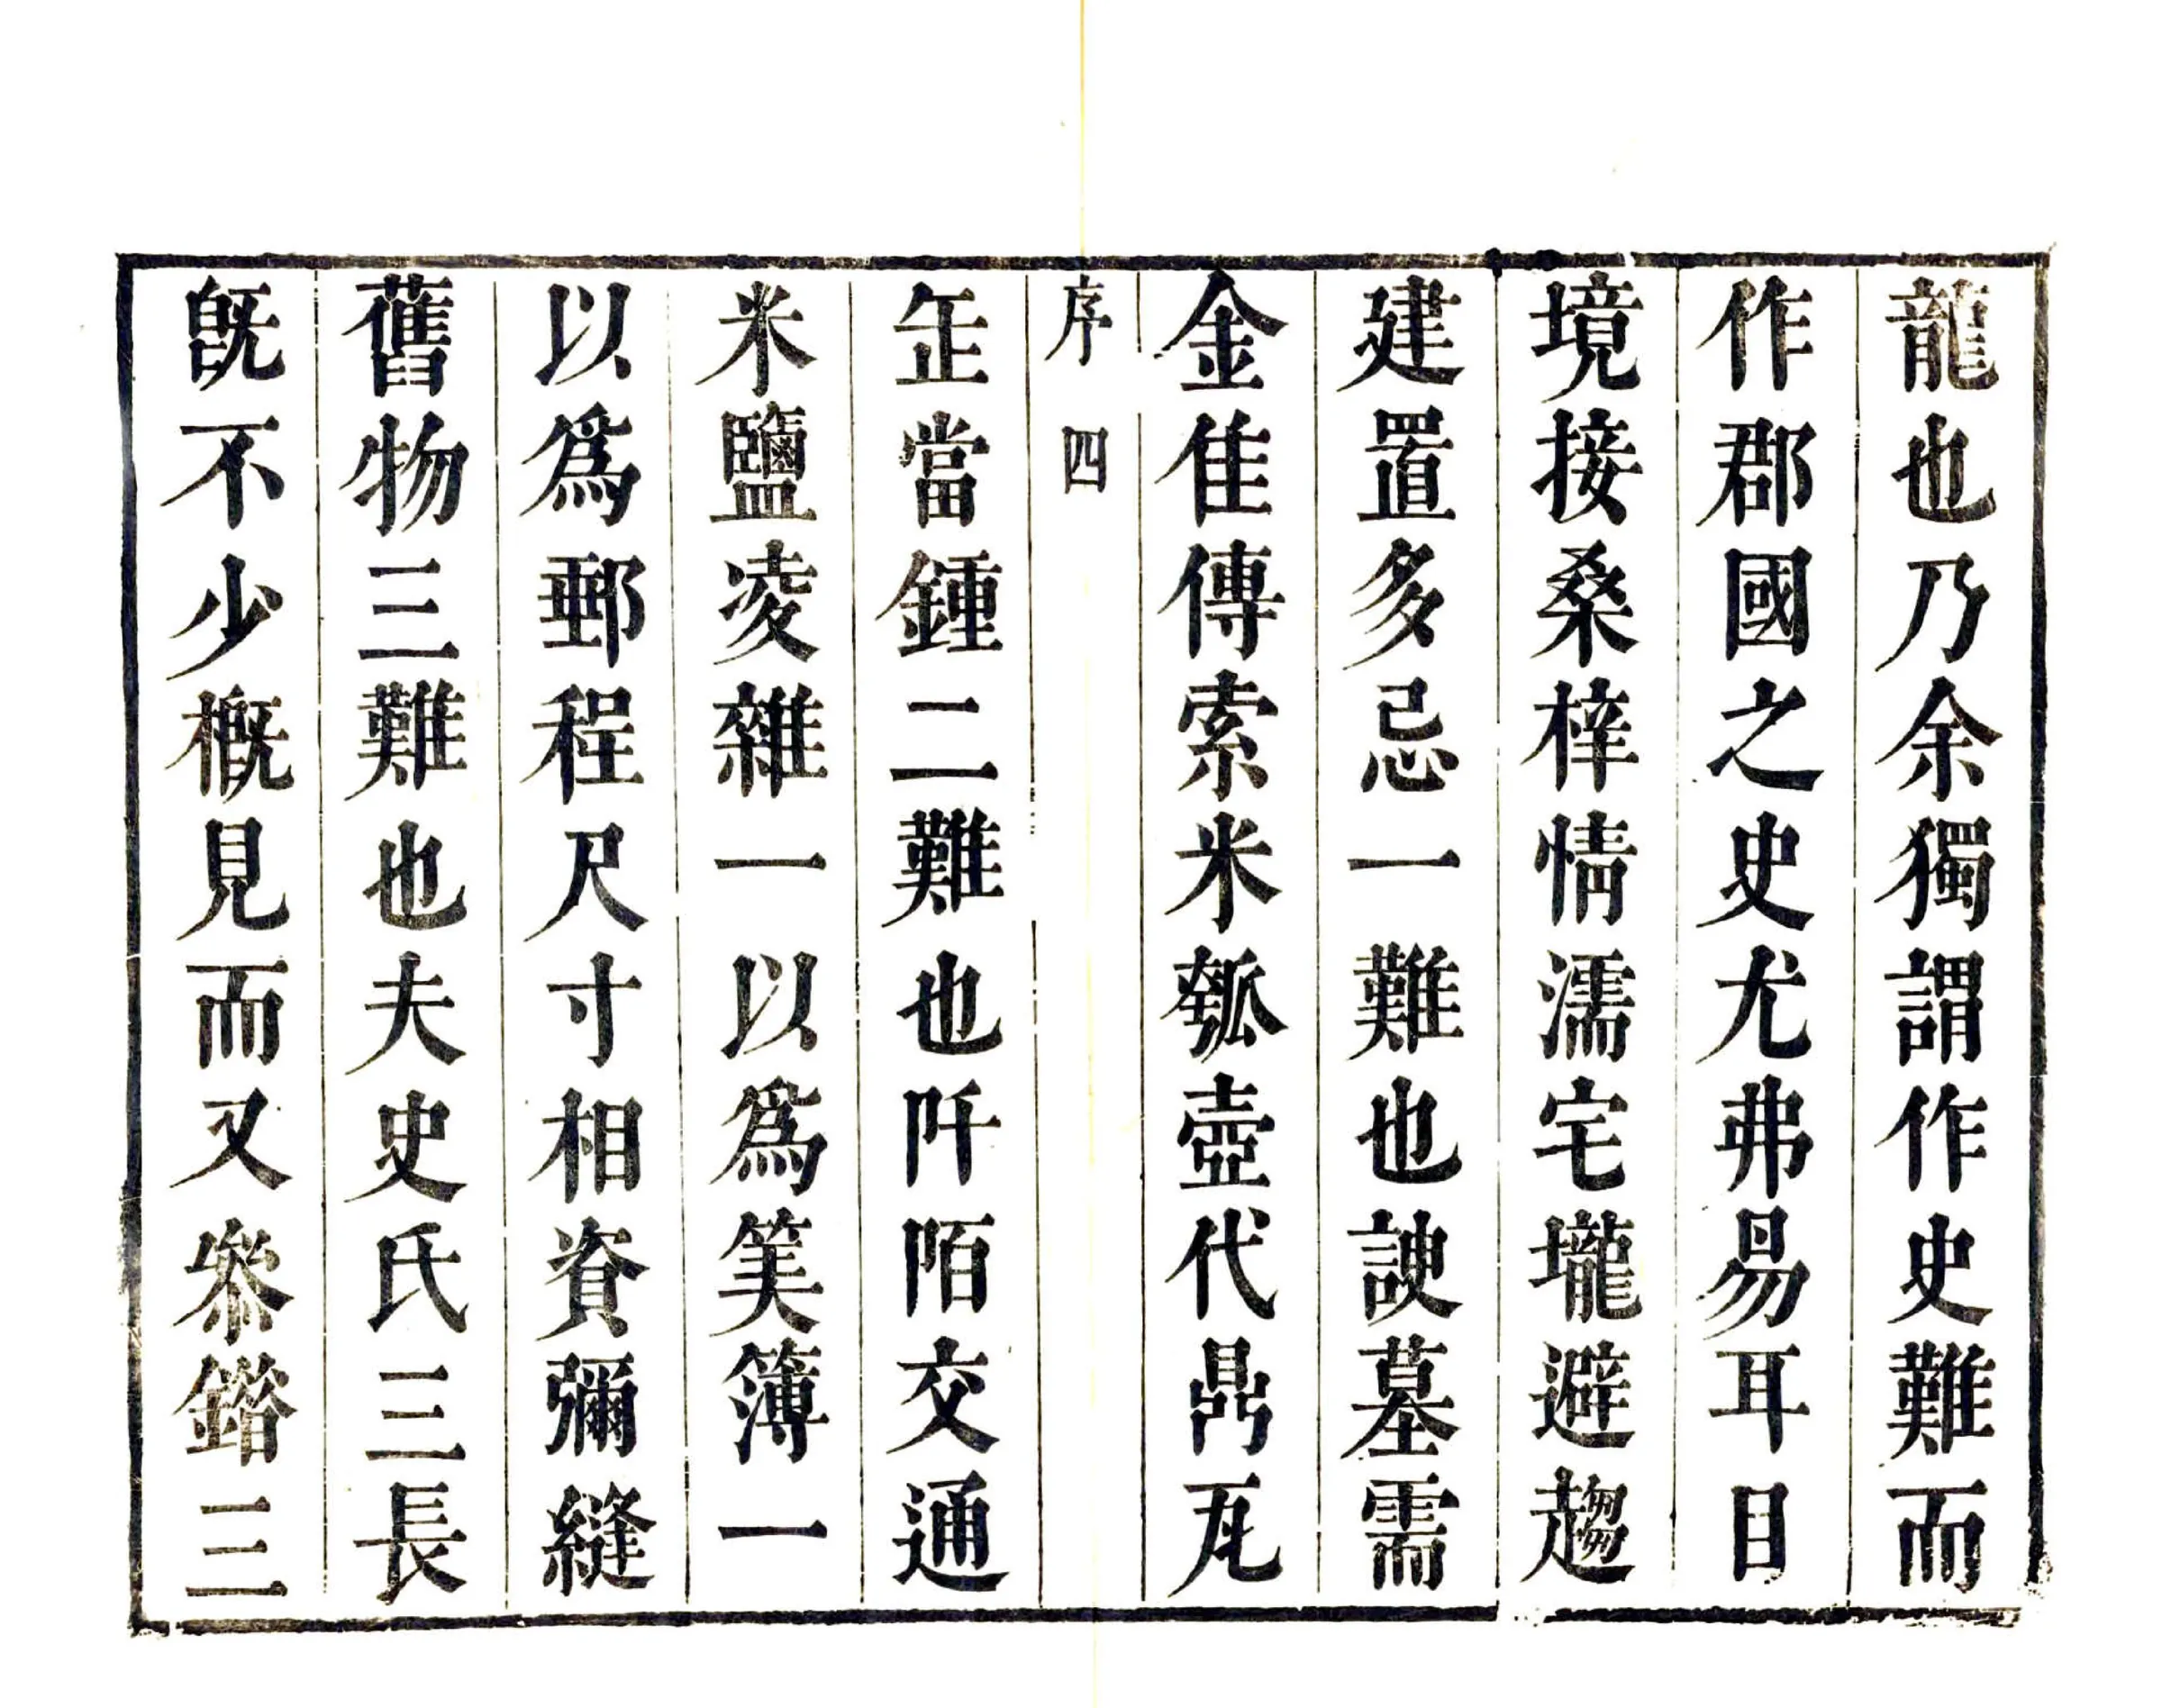 龍也乃余獨謂作史難而
作郡國之史尤弗易耳目
境接桑梓情濡宅壠避趨
建置多忌一難也諛墓需
金隹傳索米瓠壺代鼎瓦
序 四
缶當鍾二難也阡陌交通
米鹽凌雜一以為筭簿一
以為郵程尺寸相資彌縫
舊物三難也夫史氏三長
旣不少槪見而又叅鍇三